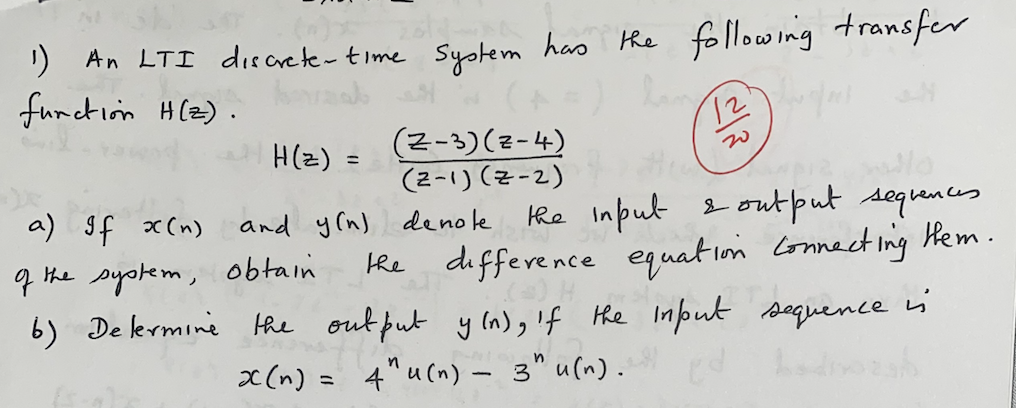 1) An LTI discrete-time System has the following transfer
function H(z).
H(z) = (z-3)(z-4) / (z-1)(z-2)
12/20
a) If x(n) and y(n) denote the input & output sequences
of the system, obtain the difference equation connecting them.
b) Determine the output y(n), if the input sequence is
x(n) = 4ⁿ u(n) – 3ⁿ u(n).